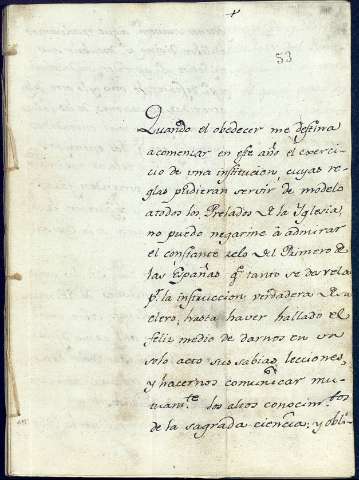 +
53
Quando el obedecer me destina
a comenzar en este año el exerci-
cio de una institucion, cuyas re-
glas pudieran servir de modelo
a todos los Prelados de la Yglesia,
no puedo negarme à admirar
el constante zelo del Primero de
las Españas q.e tanto se desvela
p.r la instruccion verdadera de su
clero, hasta haver hallado el
feliz medio de darnos en un
solo acto sus sabias lecciones,
y hacernos comunicar mu-
tuam.te los altos conocim.tos
de la sagrada ciencia; y obli-